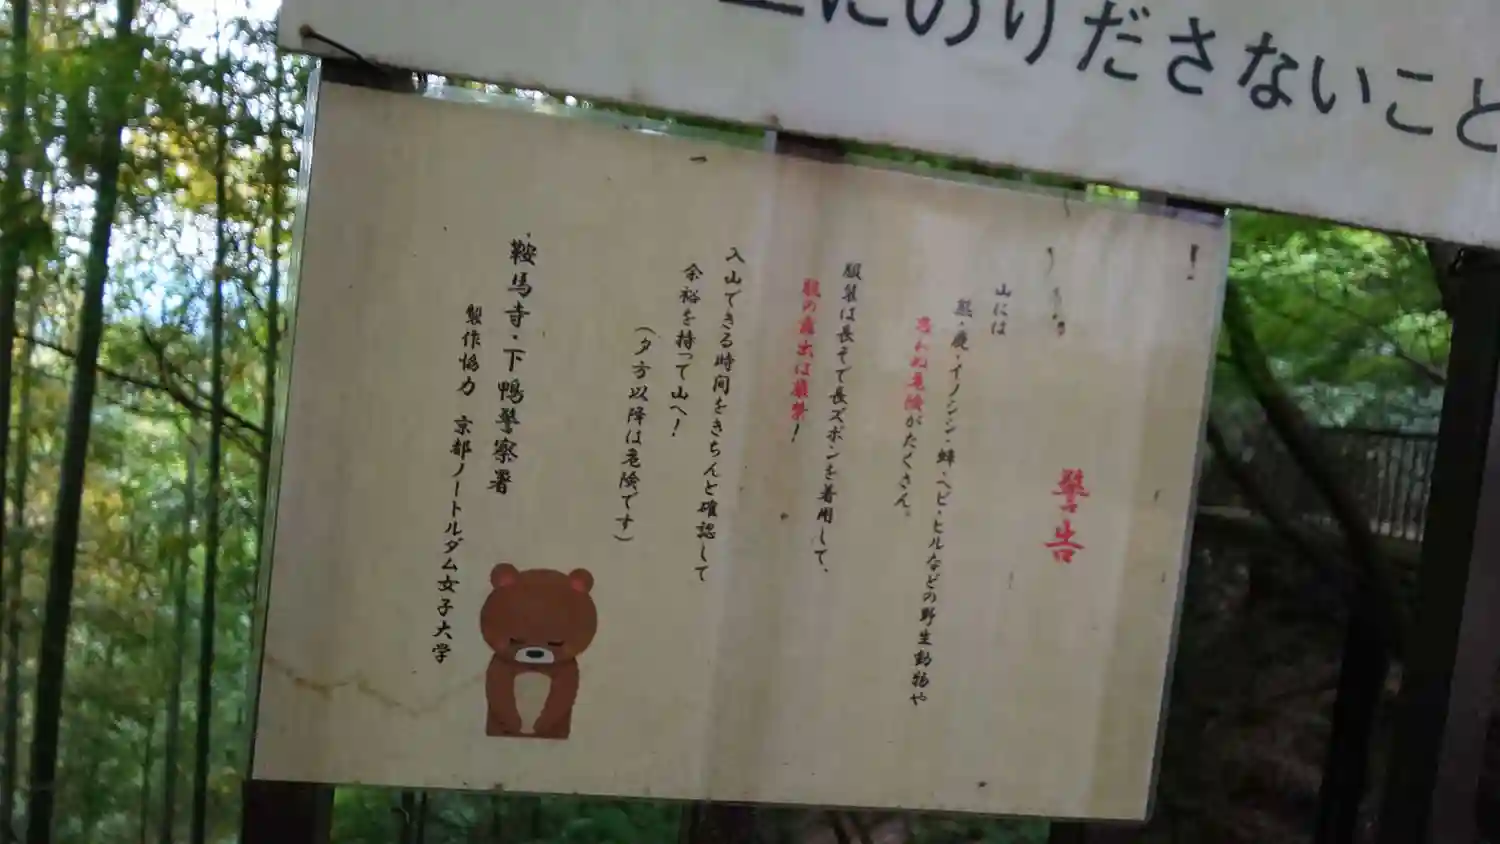 にのりださないこと
警告
山には
熊・鹿・イノシシ・蜂・ヘビ・ヒルなどの野生動物や
思わぬ危険がたくさん。
服装は長そで長ズボンを着用して、
肌の露出は厳禁!
入山できる時間をきちんと確認して
余裕を持って山へ!
(夕方以降は危険です)
鞍馬寺・下鴨警察署
製作協力 京都ノートルダム女子大学